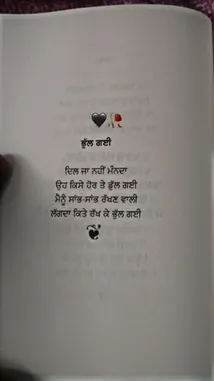 🖤🥀
ਭੁੱਲ ਗਈ
ਦਿਲ ਜਾ ਨਹੀਂ ਮੰਨਦਾ
ਉਹ ਕਿਸੇ ਹੋਰ ਤੇ ਡੁੱਲ ਗਈ
ਮੈਨੂੰ ਸਾਂਭ-ਸਾਂਭ ਰੱਖਣ ਵਾਲੀ
ਲੱਗਦਾ ਕਿਤੇ ਰੱਖ ਕੇ ਭੁੱਲ ਗਈ
❦